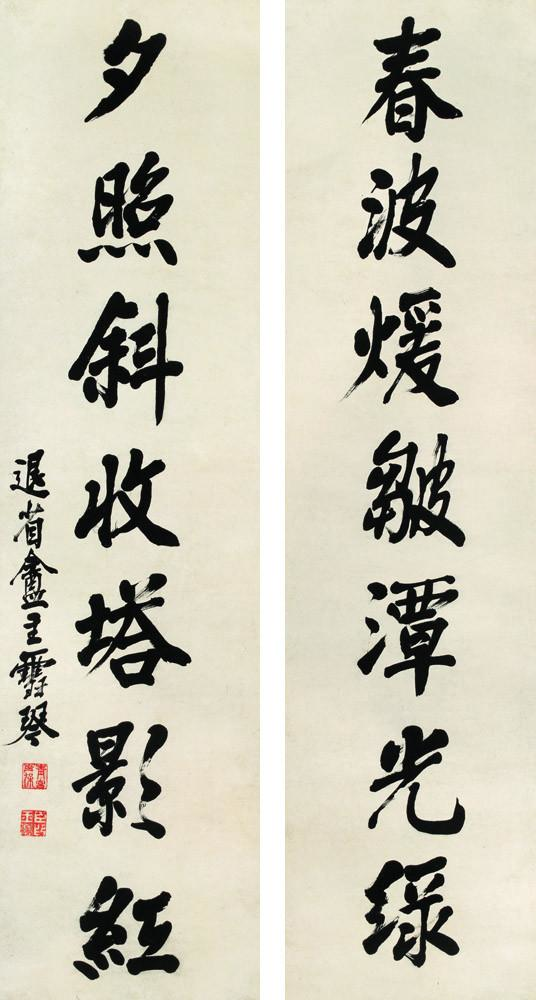 春波煖皺潭光绿
夕照斜收塔影红
退省盦主雪琴